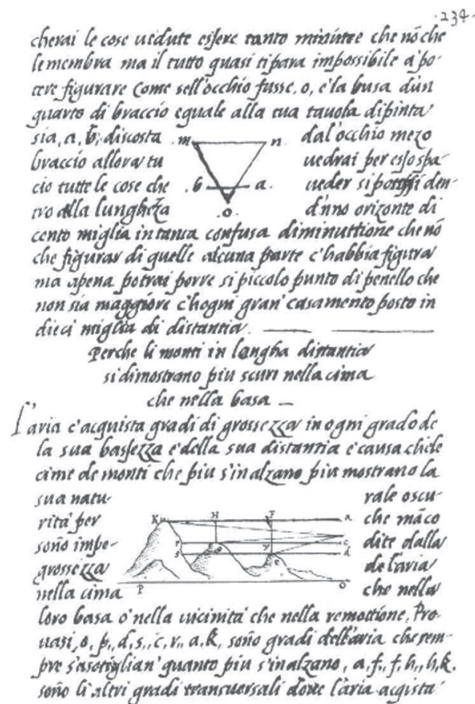 .234.
cherai le cose uedute essere tanto minutte che nō che
le membra ma il tutto quasi ti para impossibile a po-
tere figurare come sell'occhio fusse, o, e la busa d'ún
quarto di braccio eguale alla tua tauola dipinta
sia, a, b, discosta m n dal'occhio mezo
braccio allora tu uedrai per esso spa-
cio tutte le cose che b a. ueder si den-
tro alla lunghezza o d'uno orizonte di
cento miglia in tanta confusa diminuttione che nō
che figurar di quelle alcuna parte c'habbia figura
ma apena potrai porre si piccolo punto di penello che
non sia maggiore c'hogni gran' casamento posto in
dieci miglia di distantia.
Perche li monti in longha distantia
si dimostrano piu scuri nella cima
che nella basa
L'aria c'acquista gradi di grossezza in ogni grado de
la sua bassezza e della sua distantia e causa ch'ele
cime de monti che piu s'inalzano piu mostrano la
sua natu- rale oscu-
rità per K H F a che māco
sono impe- c dite dalla
grossezza d de l'aria
nella cima P O che nella
loro basa o nella uicinità che nella remottione. Pro-
uasi, o, p, d, s, c, r, a, k, sono gradi dell'aria che sem-
pre s'asotiglian' quanto piu s'inalzano, a, f, f, h, h, k,
sono li altri gradi transuersali doue l'aria acqista